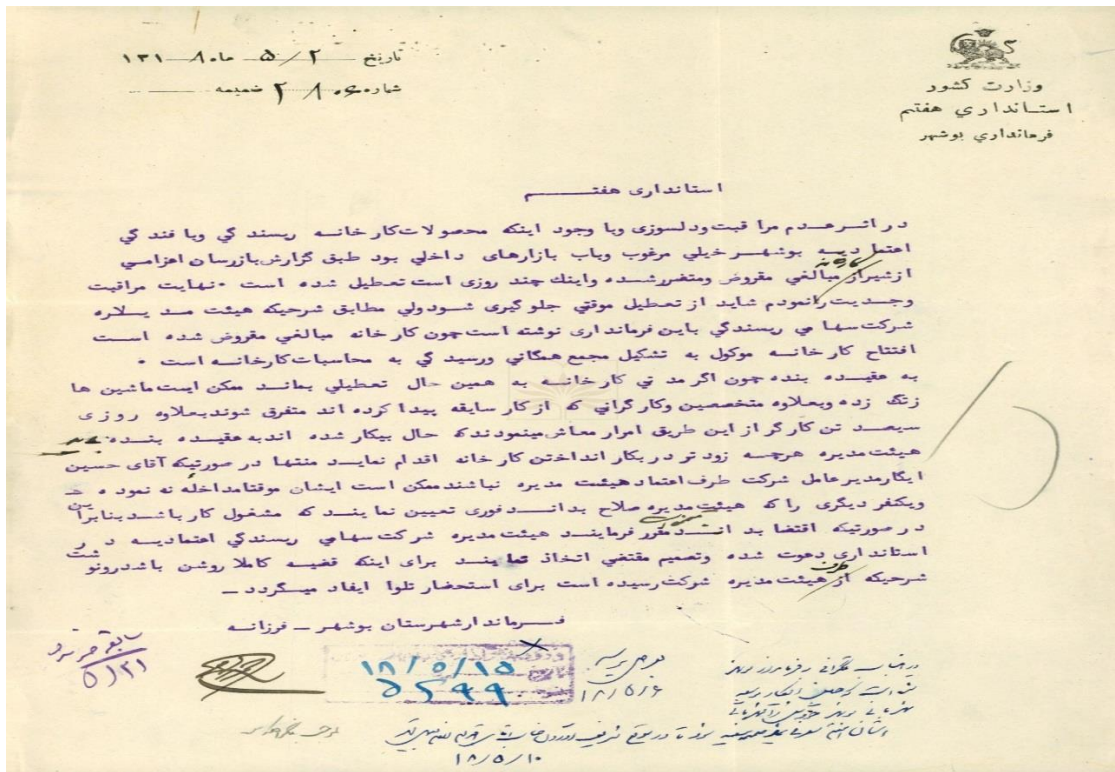 وزارت کشور
استانداري هفتم
فرمانداري بوشهر
تاریخ ۵/۲ ماه ۱۳۱۸
شماره ۲۸۰۶ ضمیمه
استانداری هفتم
در اثر عدم مراقبت ودلسوزی وبا وجود اینکه محصولات کارخانه ریسندگي وبافندگي
اعتمادیه بوشهر خیلي مرغوب وباب بازارهای داخلي بود طبق گزارش بازرسان اعزامي
ازشیراز کارخانه مبالغي مقروض ومتضررشده واینك چند روزی است تعطیل شده است ۰ نهایت مراقبت
وجدیت رانمودم شاید از تعطیل موقتي جلوگیری شودولي مطابق شرحیکه هیئت مدیره
شرکت سهامي ریسندگي باین فرمانداری نوشته است چون کارخانه مبالغي مقروض شده است
افتتاح کارخانه موکول به تشکیل مجمع همگاني ورسیدگي به محاسبات کارخانه است ۰
به عقیده بنده چون اگر مدتي کارخانه به همین حال تعطیلي بماند ممکن است ماشین ها
زنگ زده وبعلاوه متخصصین وکارگراني که ازکار سابقه پیدا کرده اند متفرق شوند بعلاوه روزی
سیصد تن کارگر از این طریق امرار معاش مینمودند که حال بیکار شده اند به عقیده بنده باید
هیئت مدیره هرچه زودتر دربکار انداختن کارخانه اقدام نماید منتها در صورتیکه آقای حسین
ابکار مدیرعامل شرکت طرف اعتماد هیئت مدیره نباشند ممکن است ایشان موقتا مداخله نه نموده
ویکنفر دیگری را که هیئت مدیره صلاح بدانند فوری تعیین نمایند که مشغول کار باشد بنابراین
در صورتیکه اقتضا بدانند مقرر فرمایند هیئت مدیره شرکت سهامي ریسندگي اعتمادیه در
استانداری دعوت شده وتصمیم مقتضي اتخاذ نمایند برای اینکه قضیه کاملا روشن باشد رونوشت
شرحیکه از طرف هیئت مدیره شرکت رسیده است برای استحضار تلوا ایفاد میگردد ــ
فرماندار شهرستان بوشهر ــ فرزانه
۱۸/۵/۱۵
۵۴۹۹
۱۸/۵/۶
۵/۲۱
۱۸/۵/۱۰